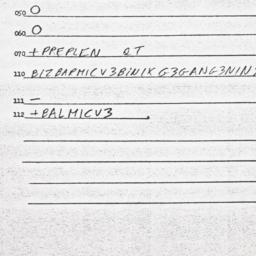 050 O
060 O
070 +PREPLEN QT
110 BIZBAPMICV3BINIKG3GANG3NIN
111 —
112 +BALMICV3.